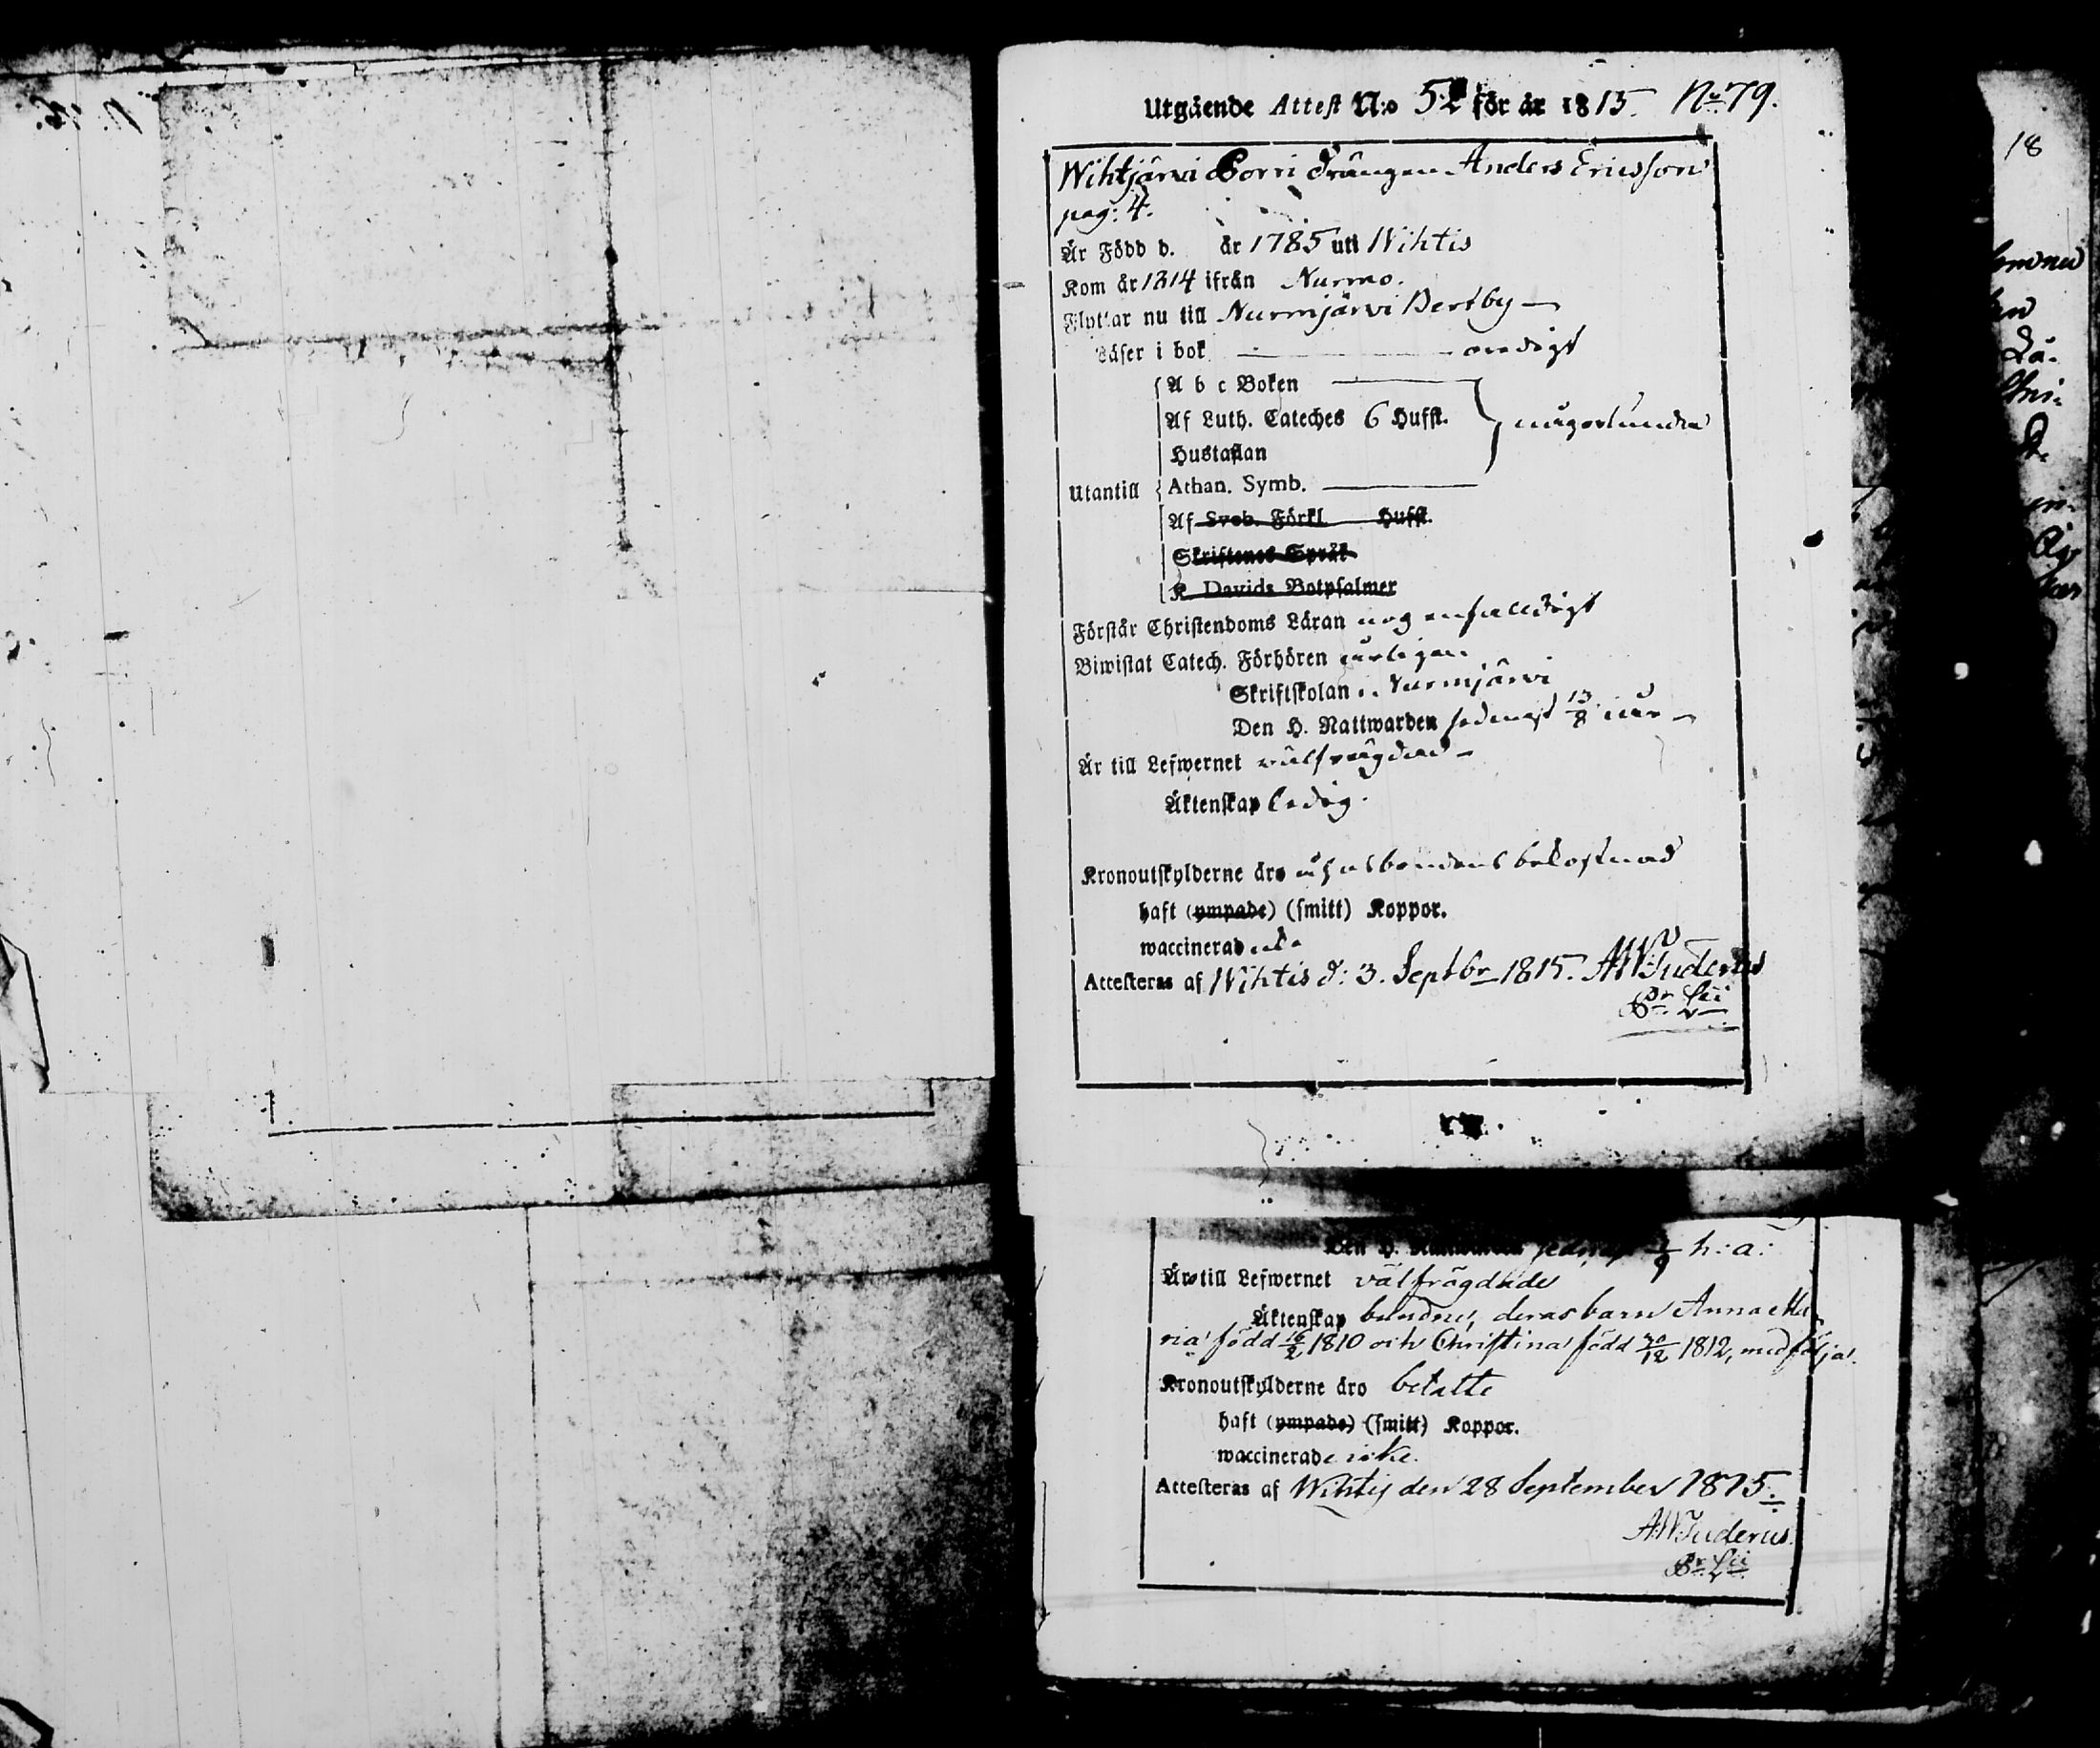 Utgående Attest N:o 52 för år 1815. No 79.
Wihtjärvi Gorri Drängen Anders Ericsson
pag: 4.
Är Född d. år 1785 uti Wihtis
Kom år 1814 ifrån Nurmo.
Flyttar nu till Nurmjärvi Pertby —
Läser i bok — ordigt
A b c Boken
Af Luth. Cateches 6 Hufst. någorlunda
Hustaflan
Utantill Athan. Symb.
Af Sveb. Förkl. Hufst.
Skriftenes Språk
K. Davids Botpsalmer
Förstår Christendoms Läran nog enfalldigt
Biwistat Catech. Förhören årligen
Skriftskolan i Nurmjärvi
Den H. Nattwarden sednast 13/8 i år —
Är till Lefwernet välfrägdad —
Äktenskap ledig.
Kronoutskylderne äro å husbondens bekostnad
haft (ympade) (smitt) Koppor.
waccinerad
Attesteras af Wihtis d: 3. Septbr 1815. AWTuderus
18
Den H. Nattwarden h: a:
Är till Lefwernet välfrägdade
Äktenskap bundne, deras barn Anna Ma
ria född 16/2 1810 och Christina född 30/12 1812, medfölja.
Kronoutskylderne äro betalte
haft (ympade) (smitt) Koppor.
waccinerade icke.
Attesteras af Wihtis den 28 September 1815.
AWTuderus.